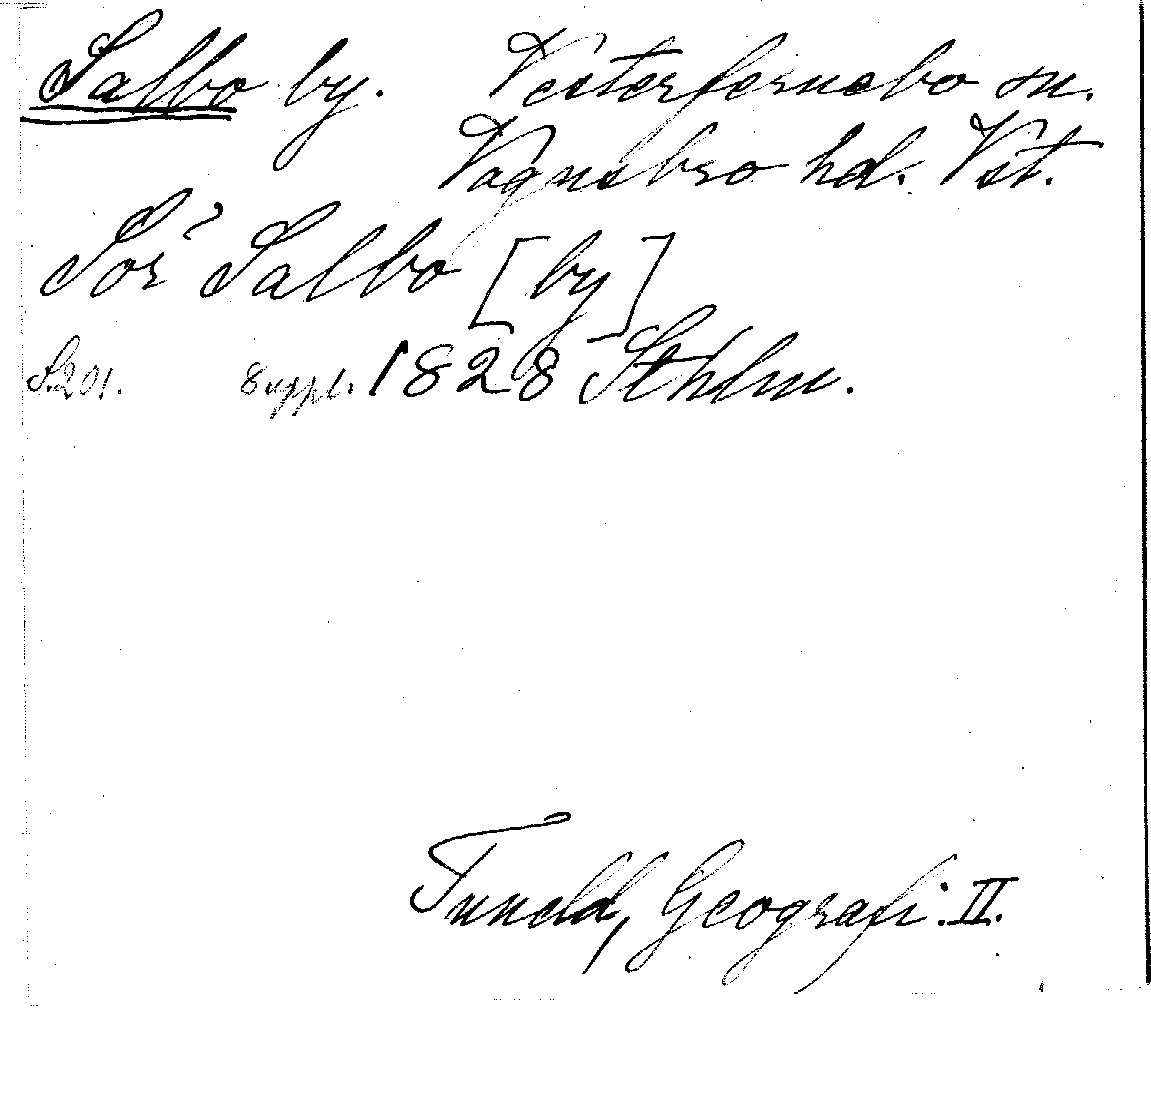 Salbo by. Vesterfernebo sn.
Vagnsbro hd. Vst.
Sör Salbo [by]
S. 201. Suppl. 1828 Sthlm.
Tuneld, Geografi. II.